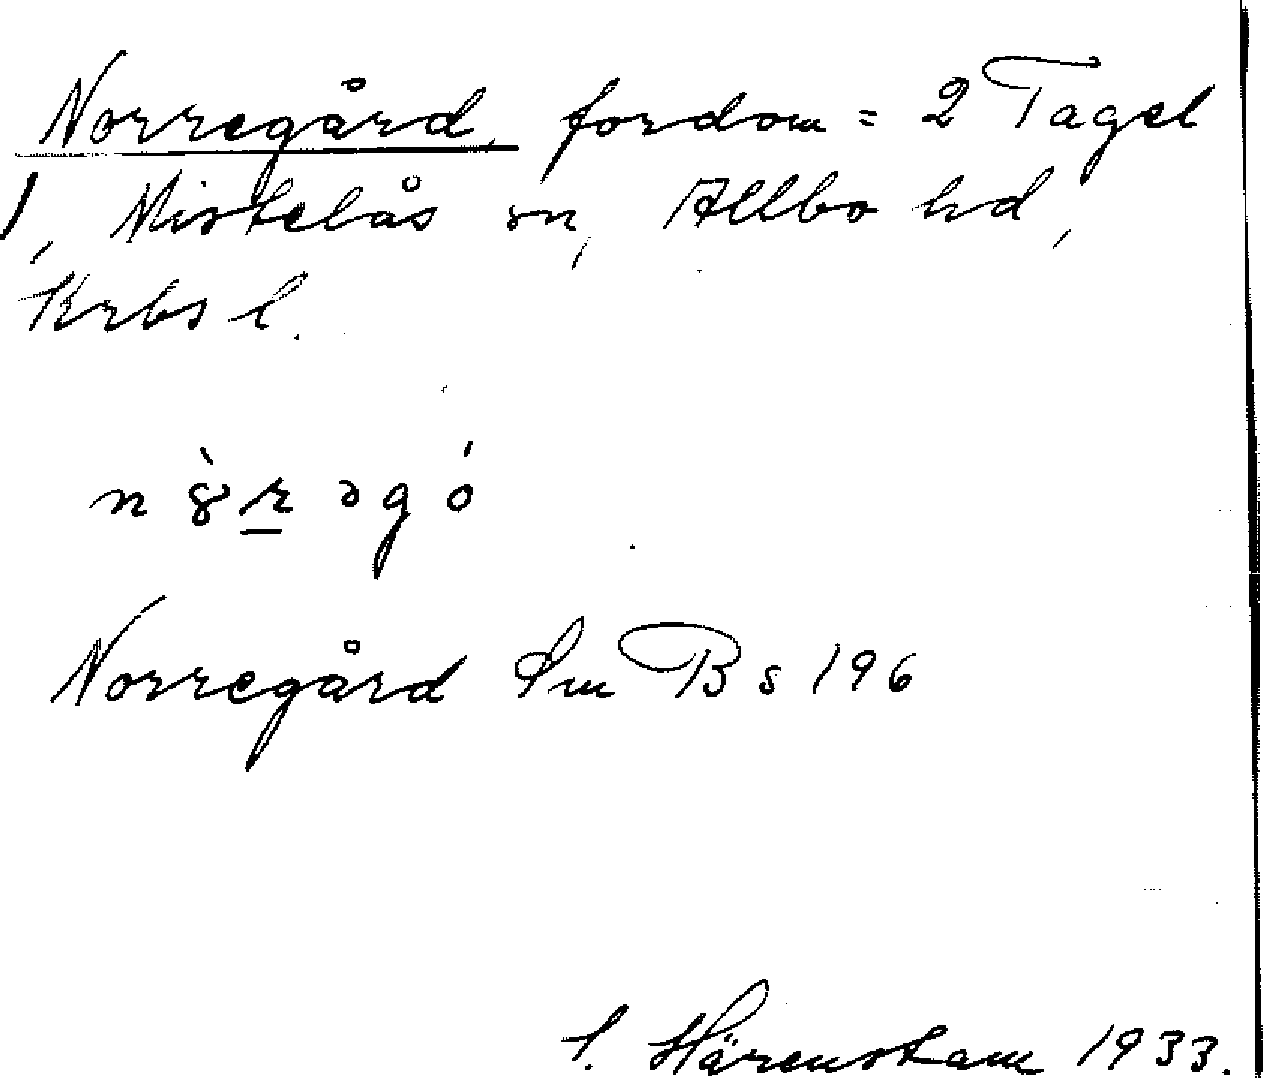 Norregård, fordom = 2 Tagel
1, Mistelås sn, Allbo hd,
Krbs l.
Norregård Sm B s 196
S. Härenstam 1933.